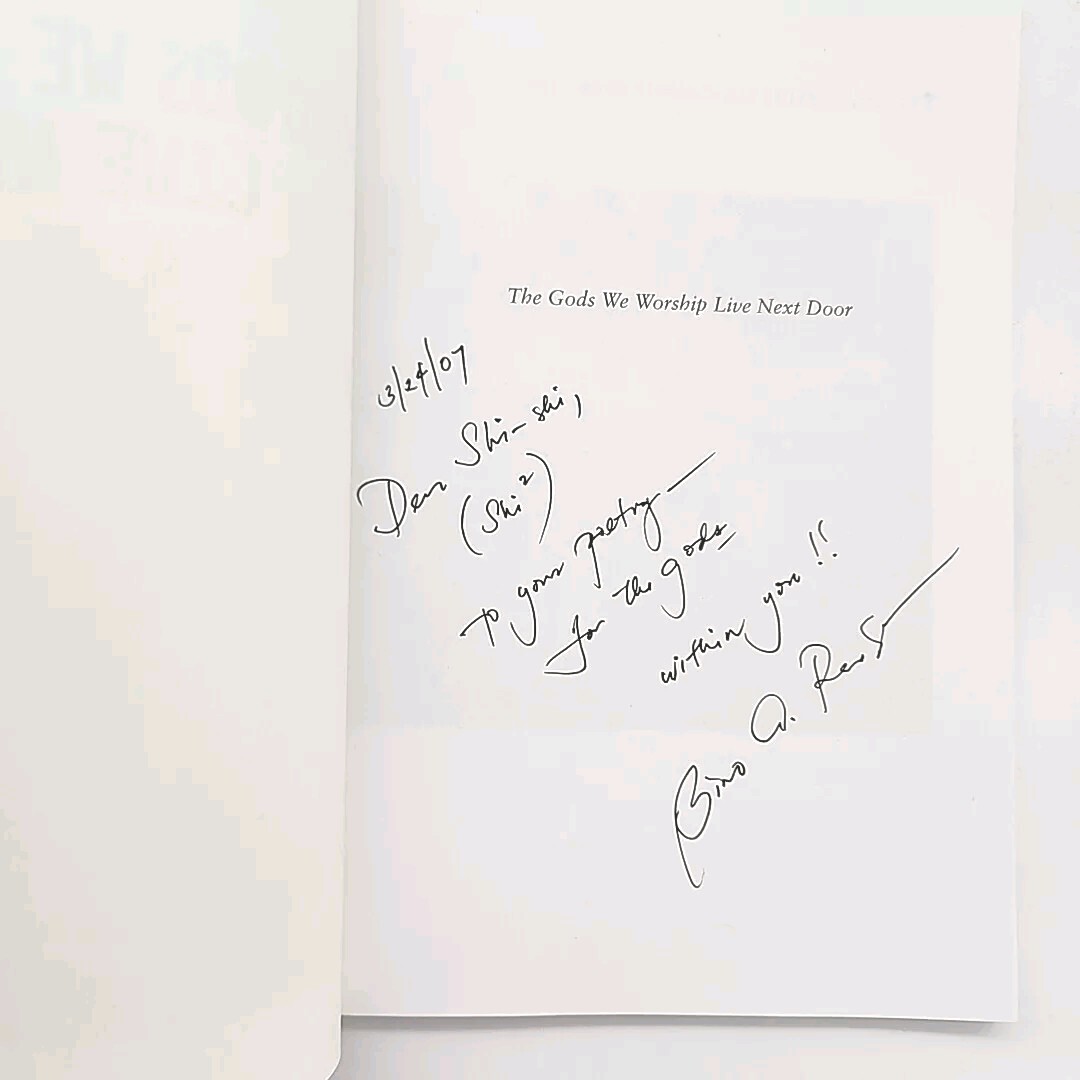 The Gods We Worship Live Next Door
3/24/07
Dear Shi-shi,
(Shi²)
to your poetry —
for the gods
within you!!
Bino A.